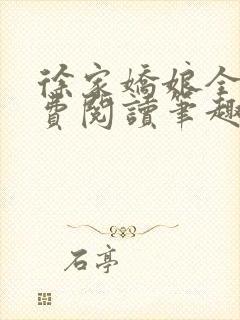 徐家嬌娘全
費閱讀筆趣
石亭